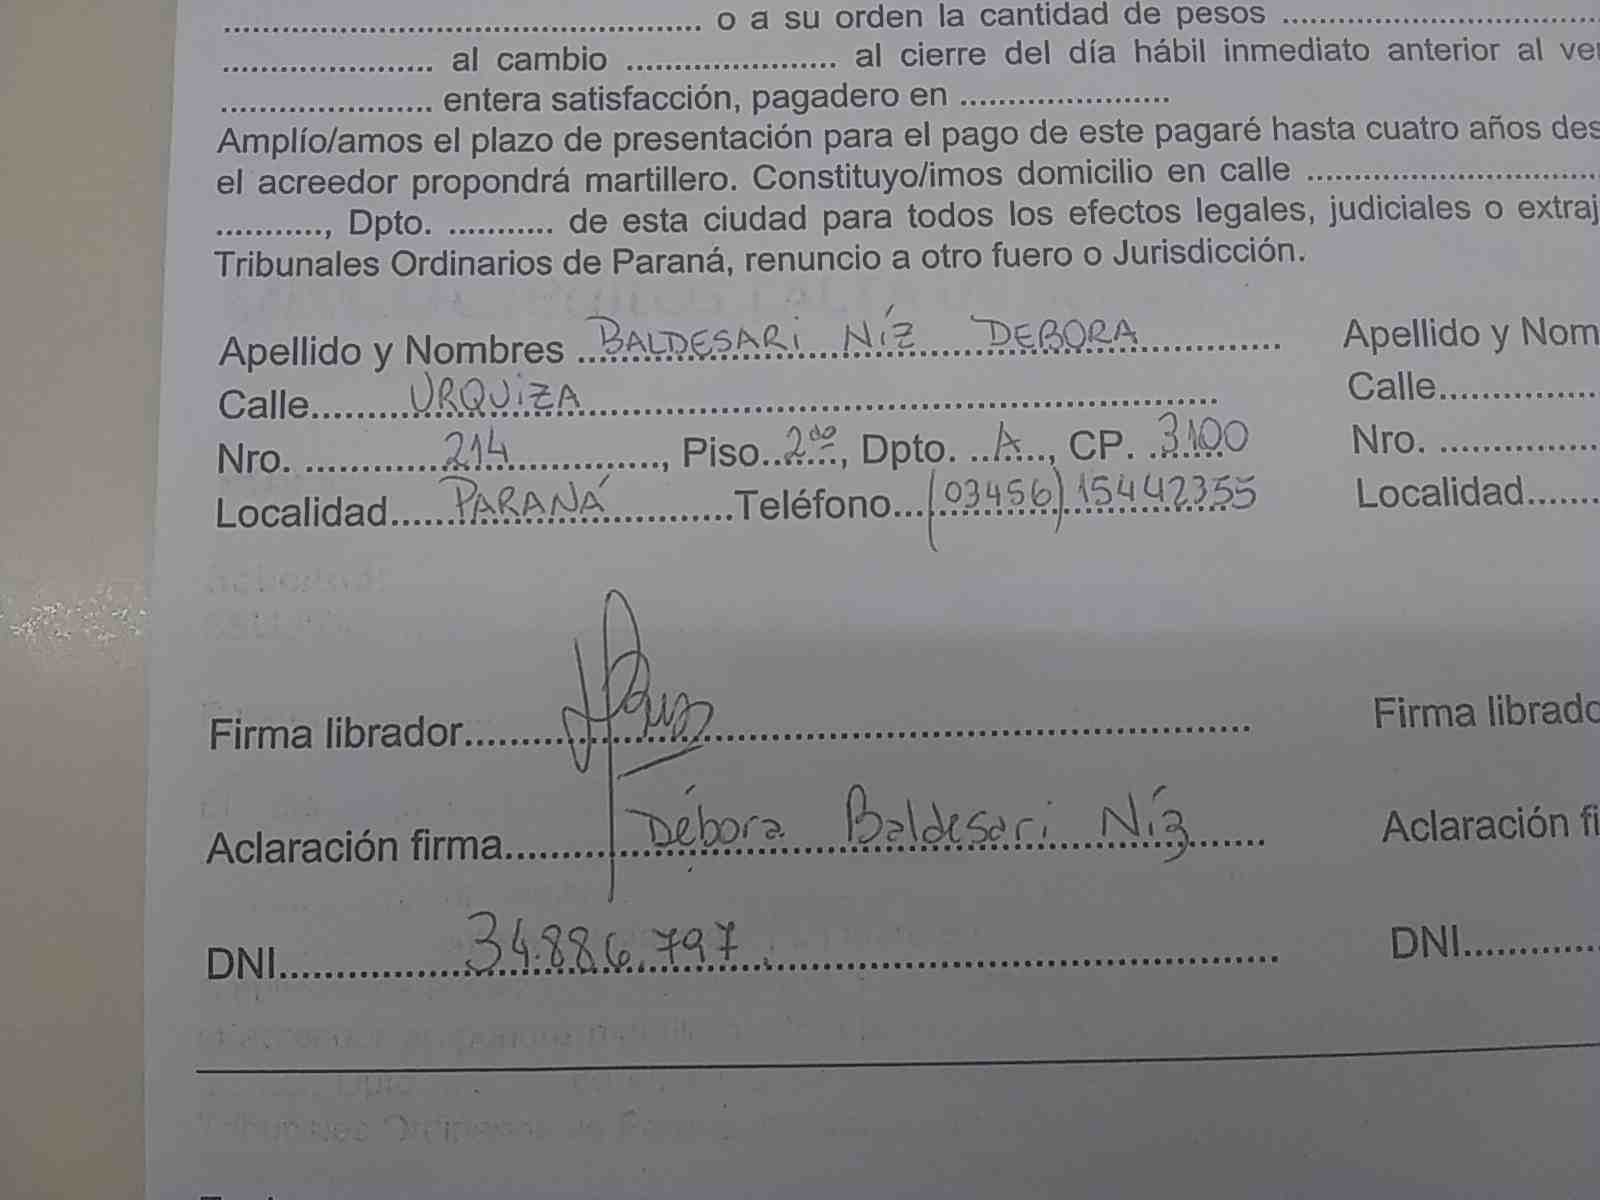 ........................................ o a su orden la cantidad de pesos ........................................
...................... al cambio ...................... al cierre del día hábil inmediato anterior al
...................... entera satisfacción, pagadero en ......................
Amplío/amos el plazo de presentación para el pago de este pagaré hasta cuatro años des
el acreedor propondrá martillero. Constituyo/imos domicilio en calle ..............................
..........., Dpto. ........... de esta ciudad para todos los efectos legales, judiciales o extraj
Tribunales Ordinarios de Paraná, renuncio a otro fuero o Jurisdicción.
Apellido y Nombres BALDESARI NÍZ DEBORA Apellido y Nom
Calle URQUIZA Calle
Nro. 214, Piso 2do, Dpto. A, CP. 3100 Nro.
Localidad PARANÁ Teléfono (03456) 15442355 Localidad
Firma librador Firma librado
Aclaración firma Débora Baldesari Níz Aclaración fi
DNI 34.886.797 DNI